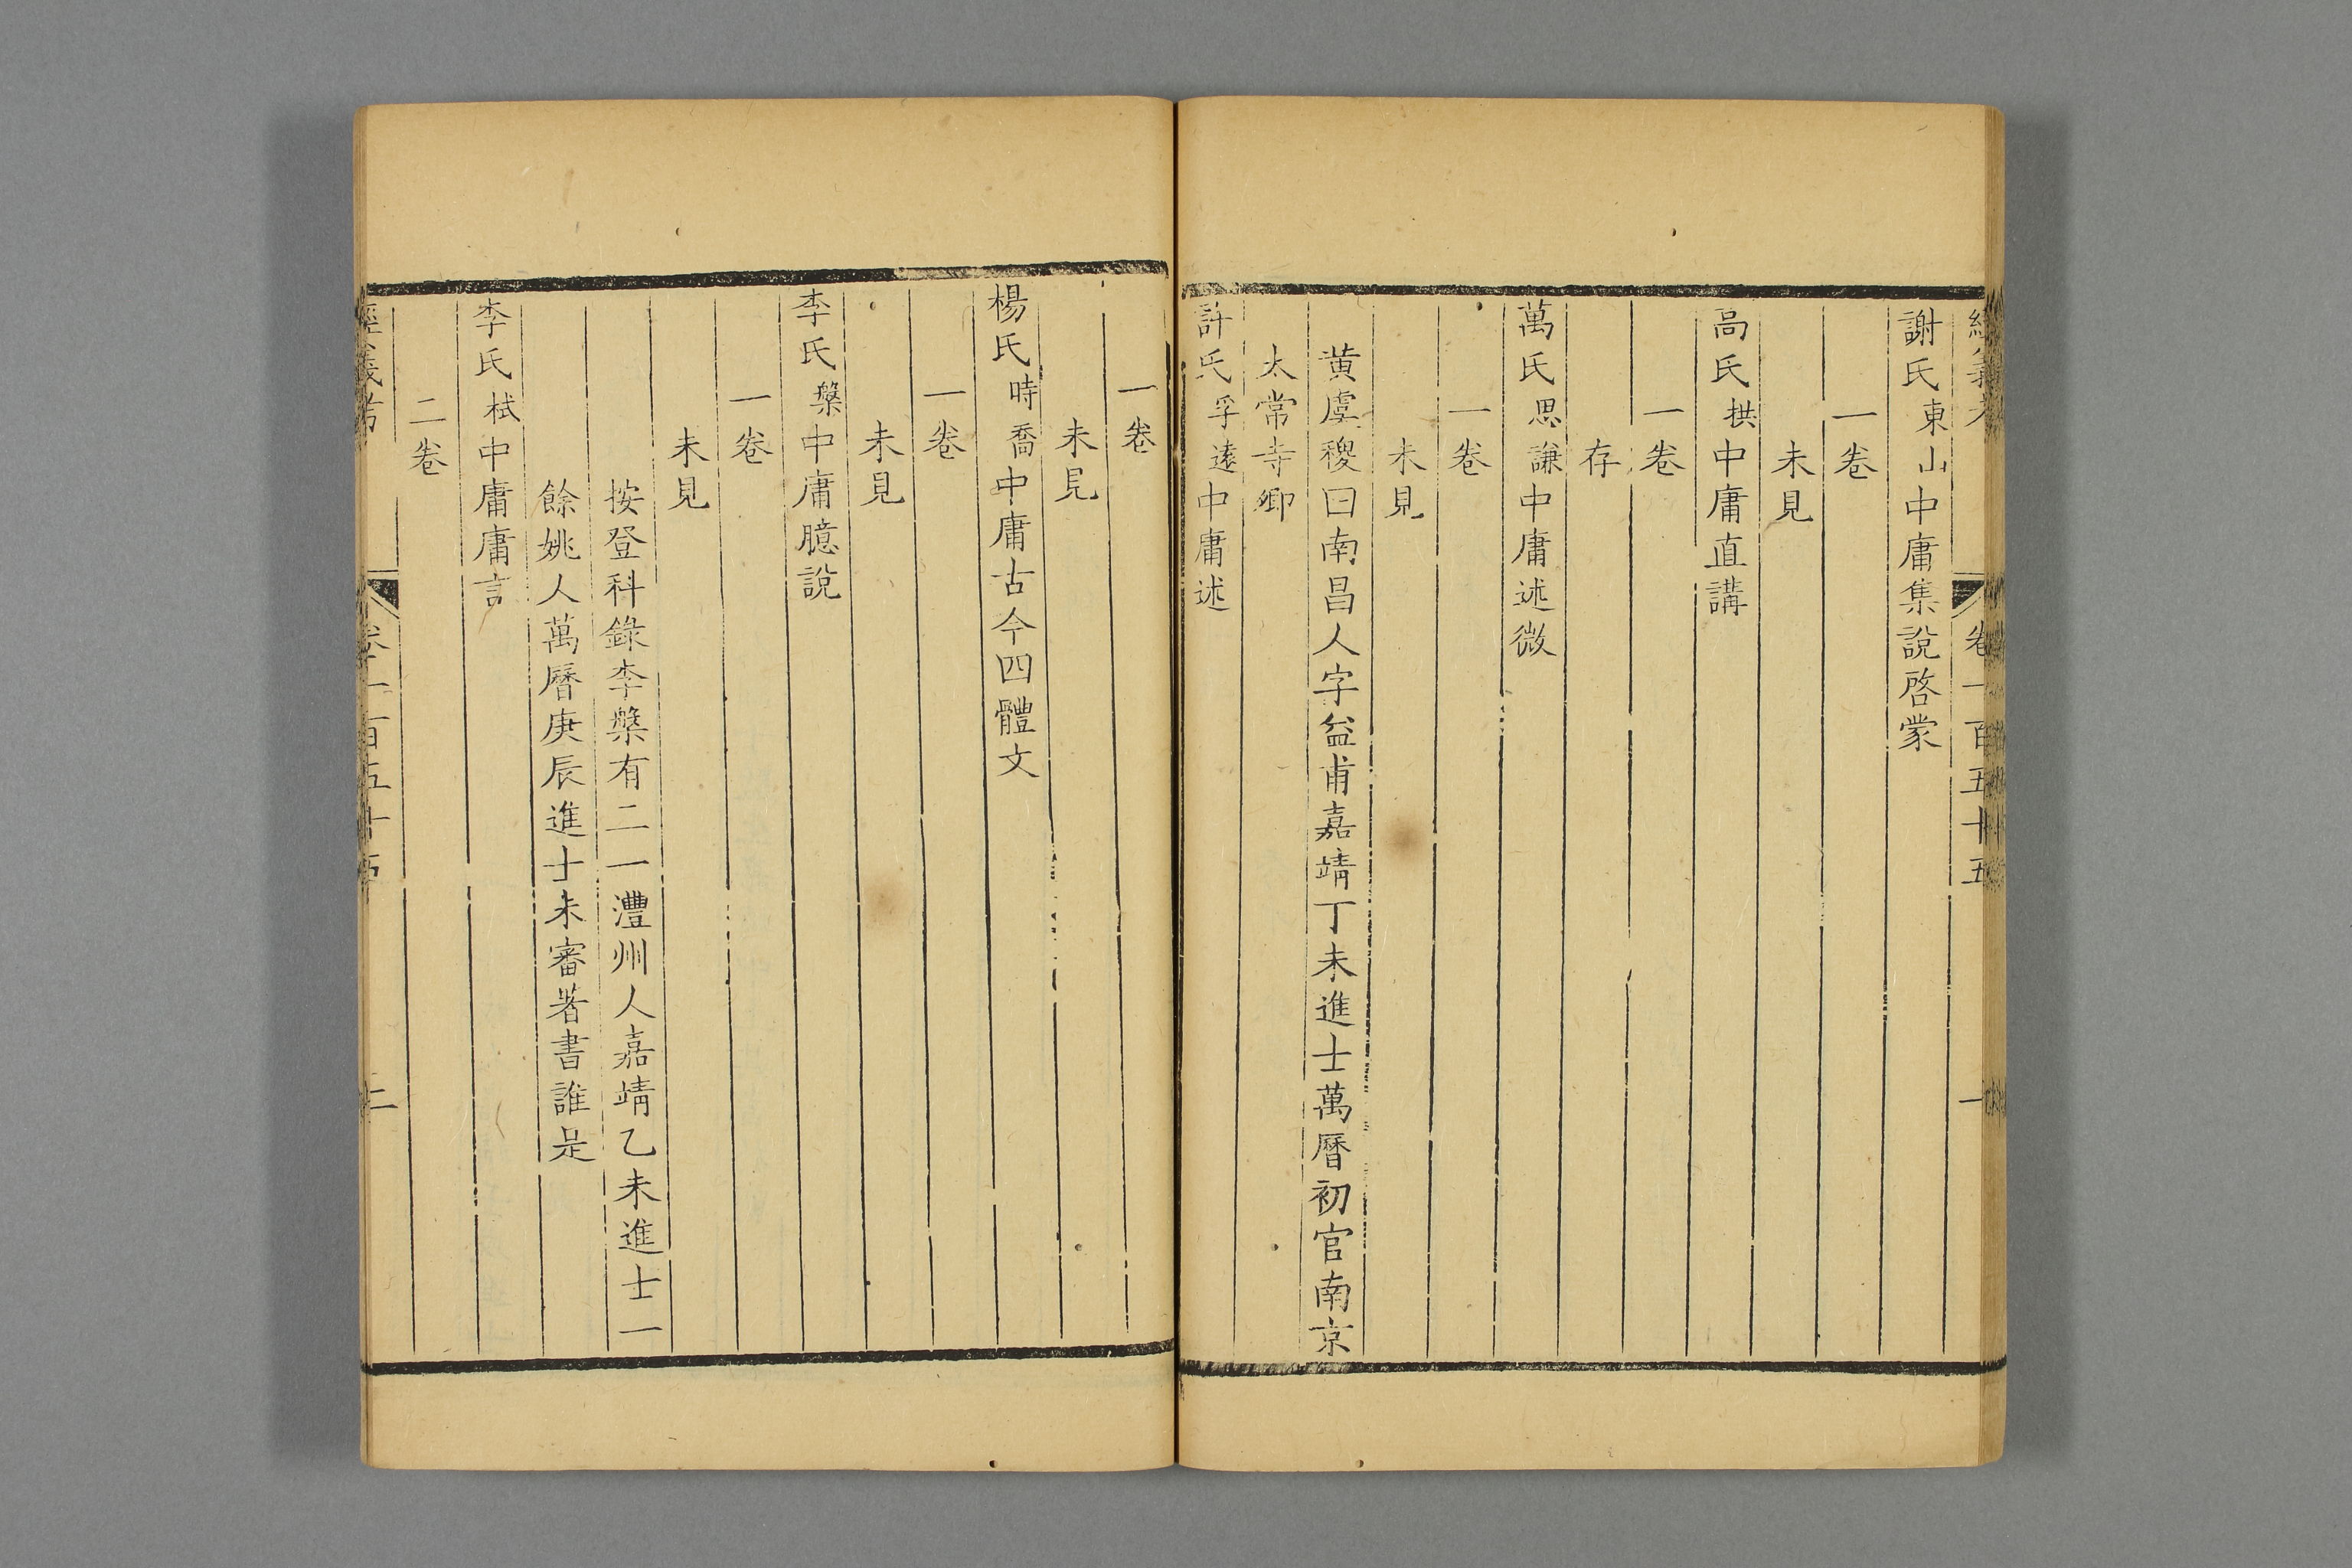 經義考 卷一百五十五 一
謝氏東山中庸集說啓蒙
一卷
未見
高氏拱中庸直講
一卷
存
萬氏思謙中庸述微
一卷
未見
黄虞稷曰南昌人字益甫嘉靖丁未進士萬曆初官南京
太常寺卿
許氏孚遠中庸述
一卷
未見
楊氏時喬中庸古今四體文
一卷
未見
李氏槃中庸臆說
一卷
未見
按登科錄李槃有二一灃州人嘉靖乙未進士一
餘姚人萬曆庚辰進士未審著書誰是
李氏栻中庸庸言
二卷
經義考 卷一百五十五 二